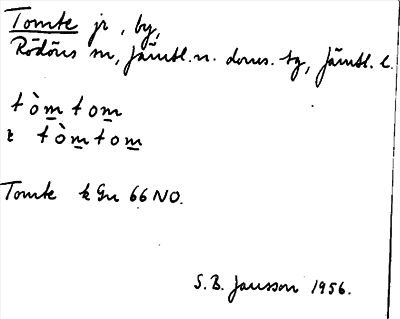 Tomte jr, by,
Rödöns sn, Jämtl. n. doms. tg, Jämtl. l.
tòm̲tom̲
ɛ tòm̲tom̲
Tomte k Gu 66 NO.
S. B. Jansson 1956.